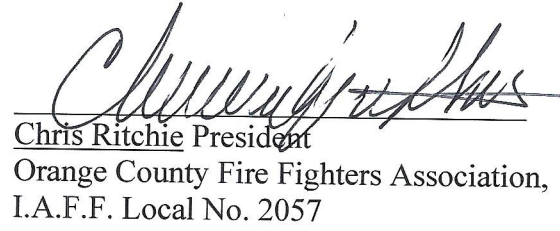 Chris Ritchie President
Orange County Fire Fighters Association,
I.A.F.F. Local No. 2057